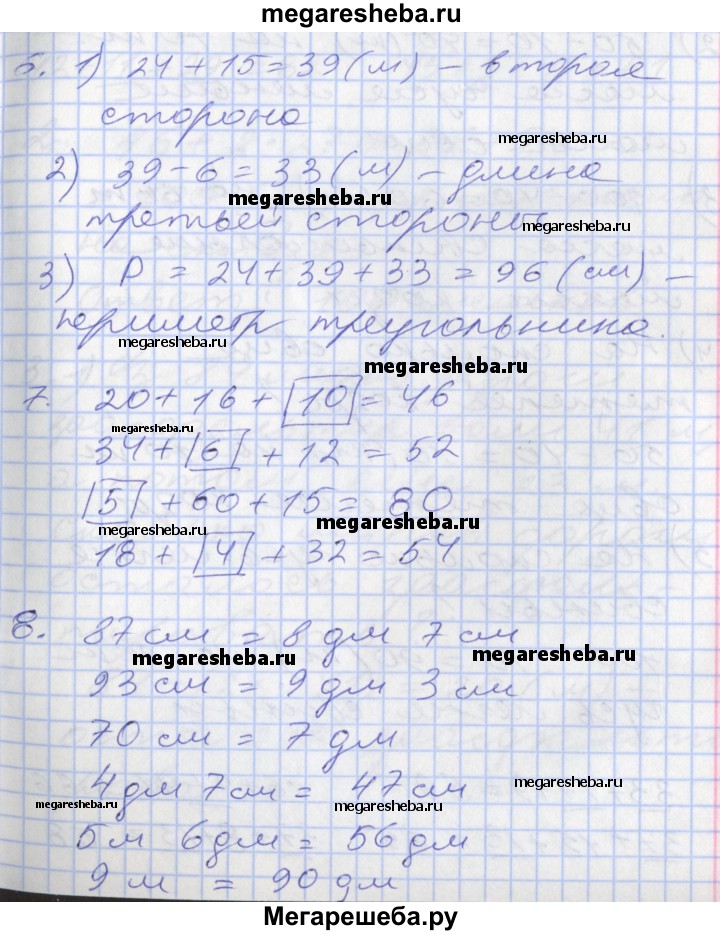 megaresheba.ru
6. 1) 24 + 15 = 39 (м) – вторая
сторона
megaresheba.ru
2) 39 – 6 = 33 (м) – длина
megaresheba.ru
третьей стороны
megaresheba.ru
3) P = 24 + 39 + 33 = 96 (см) –
периметр треугольника.
megaresheba.ru
megaresheba.ru
7. 20 + 16 + 10 = 46
megaresheba.ru
34 + 6 + 12 = 52
5 + 60 + 15 = 80
megaresheba.ru
megaresheba.ru
18 + 4 + 32 = 54
8. 87 см = 8 дм 7 см
megaresheba.ru
megaresheba.ru
93 см = 9 дм 3 см
70 см = 7 дм
4 дм 7 см = 47 см
megaresheba.ru
megaresheba.ru
megaresheba.ru
5 м 6 дм = 56 дм
9 м = 90 дм
Мегарешеба.ру